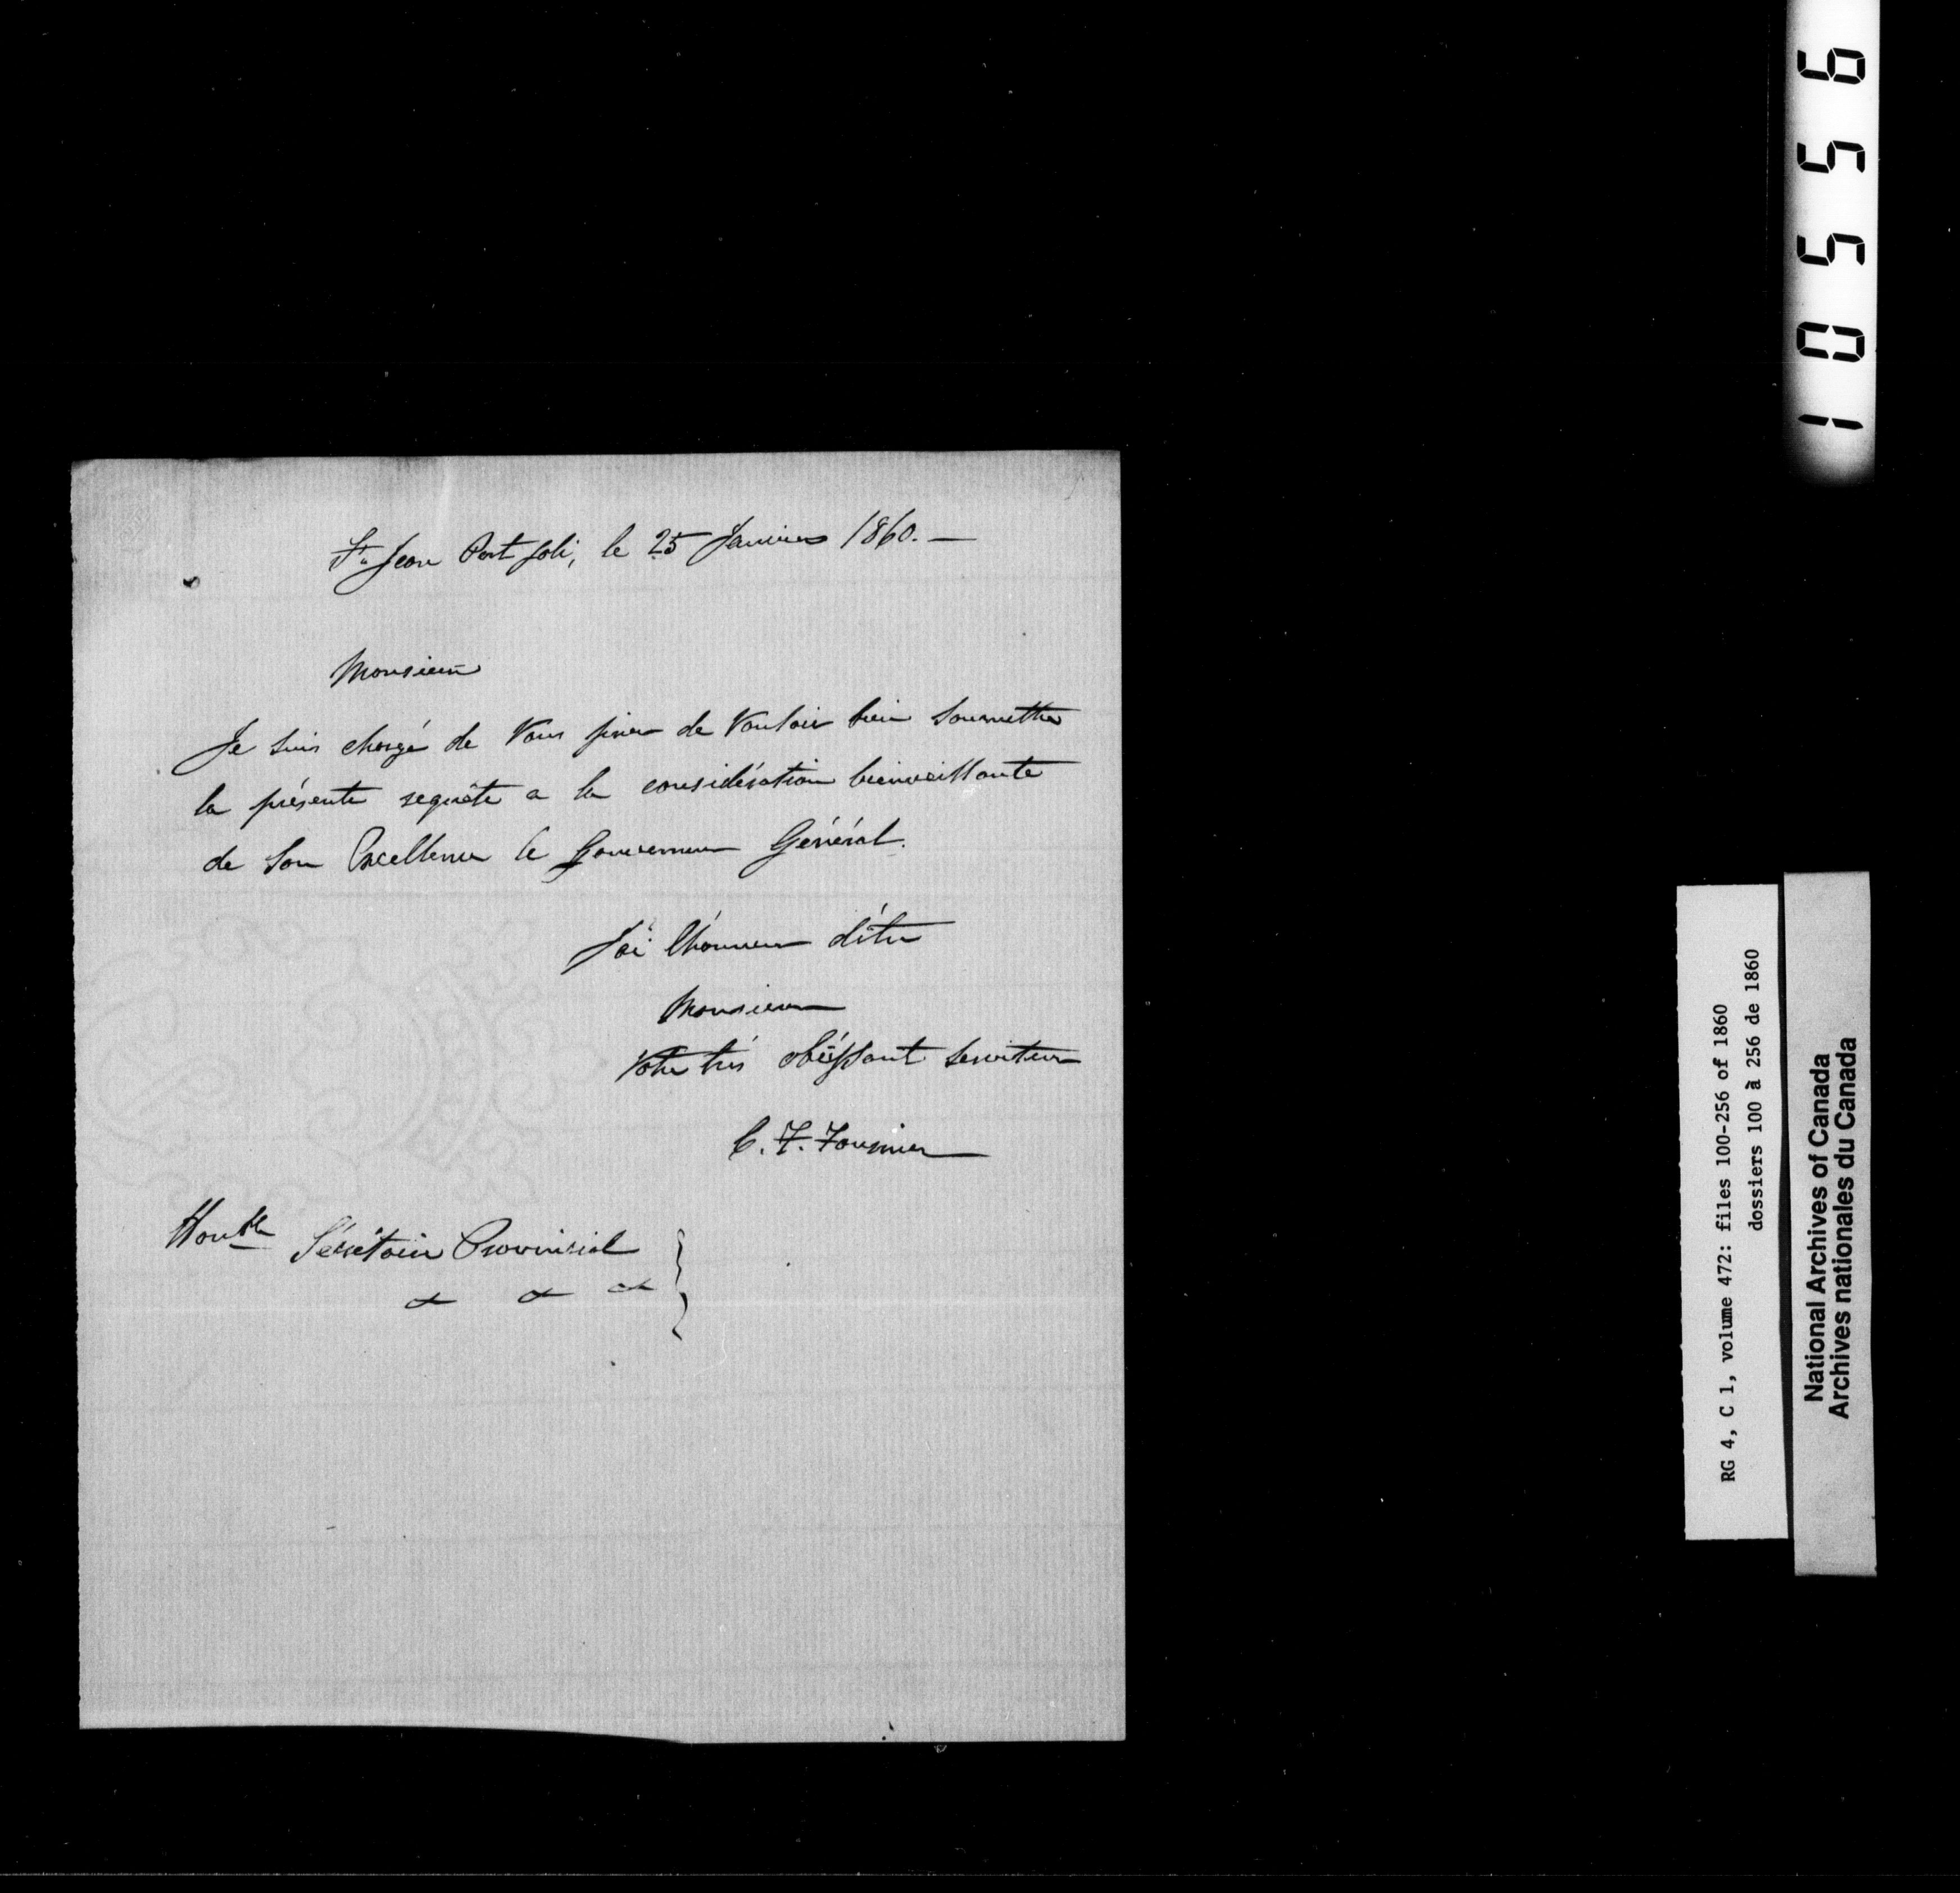 St. Jean Port Joli, le 25 Janvier 1860. —
Monsieur
Je suis chargé de Vous prier de Vouloir bien soumettre
la présente requête a la considération bienveillante
de Son Excellence le Gouverneur Général.
J'ai l'honneur d'être
Monsieur
Votre très obéissant serviteur
C. F. Fournier
Honble Sécrétaire Provincial
&c &c &c
10556
RG 4, C 1, volume 472: files 100-256 of 1860
dossiers 100 à 256 de 1860
National Archives of Canada
Archives nationales du Canada